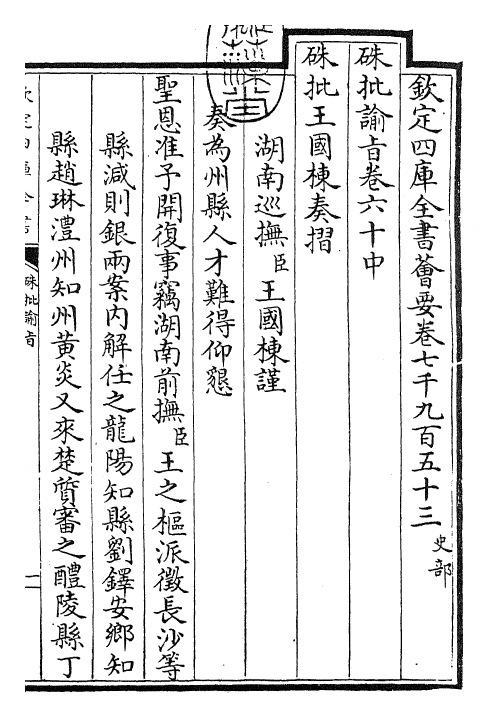 欽定四庫全書薈要卷七千九百五十三 史部
硃批諭旨卷六十中
硃批王國棟奏摺
湖南巡撫臣王國棟謹
奏為州縣人才難得仰懇
聖恩准予開復事竊湖南前撫臣王之樞派徵長沙等
縣減則銀兩案内解任之龍陽知縣劉鐸安鄉知
縣趙琳澧州知州黄炎又來楚質審之醴陵縣丁
欽定四庫全書
硃批諭旨
一